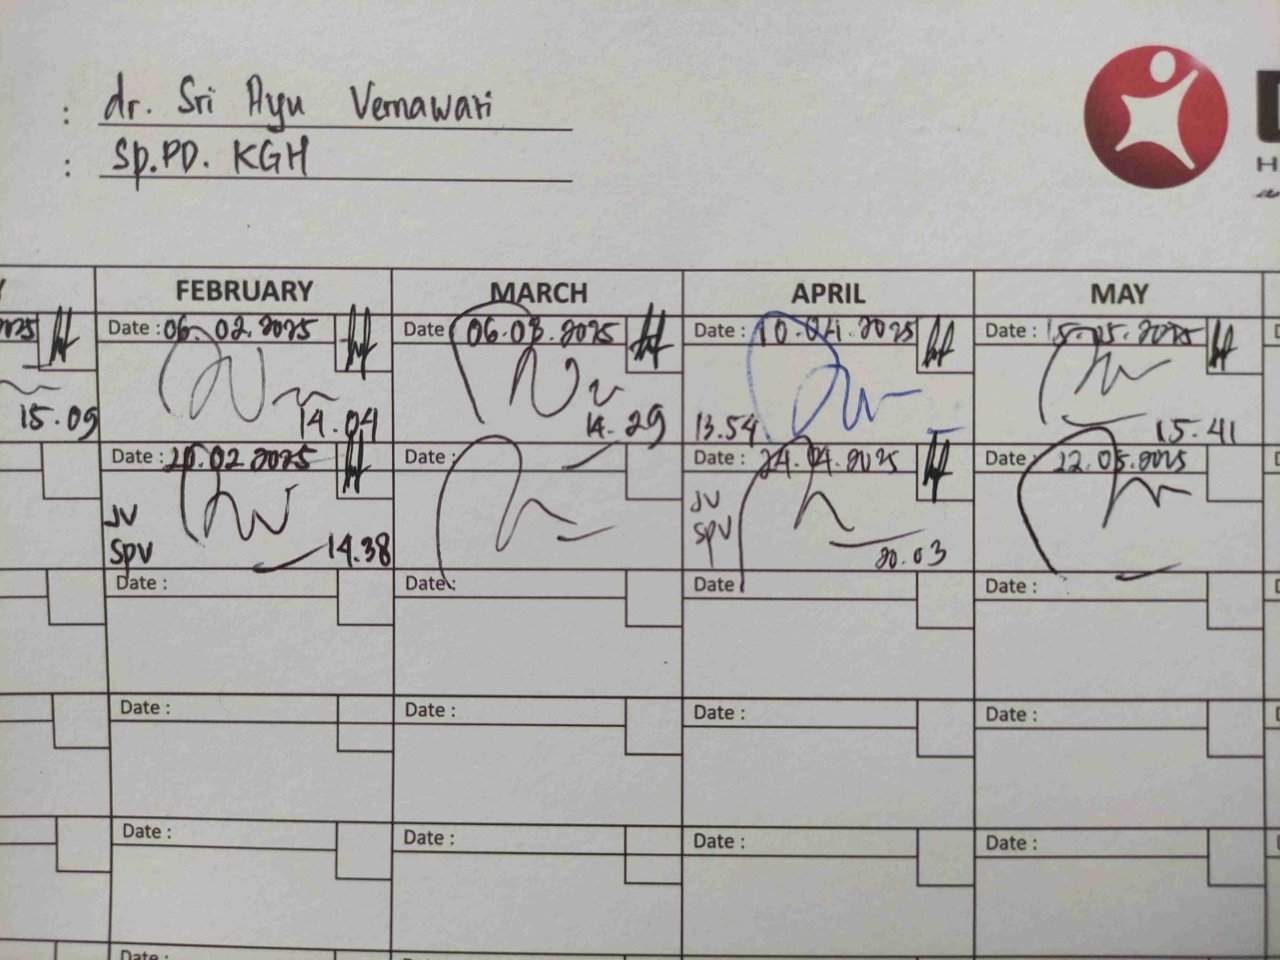 : dr. Sri Ayu Vernawati
: Sp.PD. KGH
H
FEBRUARY MARCH APRIL MAY
Date : 06.02.2025 Date : 06.03.2025 Date : 10.04.2025 Date : 15.05.2025
15.09 14.04 14.29 13.54 15.41
Date : 20.02.2025 Date : Date : 24.04.2025 Date : 22.05.2025
JV JV
SPV 14.38 SPV 20.03
Date : Date : Date Date :
Date : Date : Date : Date :
Date : Date : Date : Date :
Date :